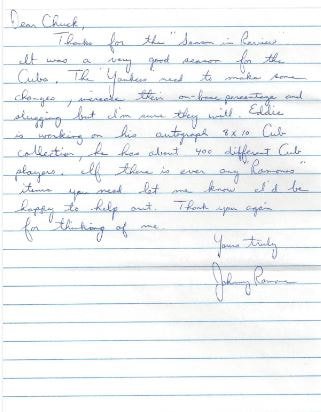 Dear Chuck,
Thanks for the "Season in Review"
It was a very good season for the
Cubs. The Yankees need to make some
changes, increase their on-base percentage and
slugging but I'm sure they will. Eddie
is working on his autograph 8x10 Cub
collection, he has about 400 different Cub
players. If there is ever any "Ramones"
items you need let me know I'd be
happy to help out. Thank you again
for thinking of me.
Yours truly
Johnny Ramone